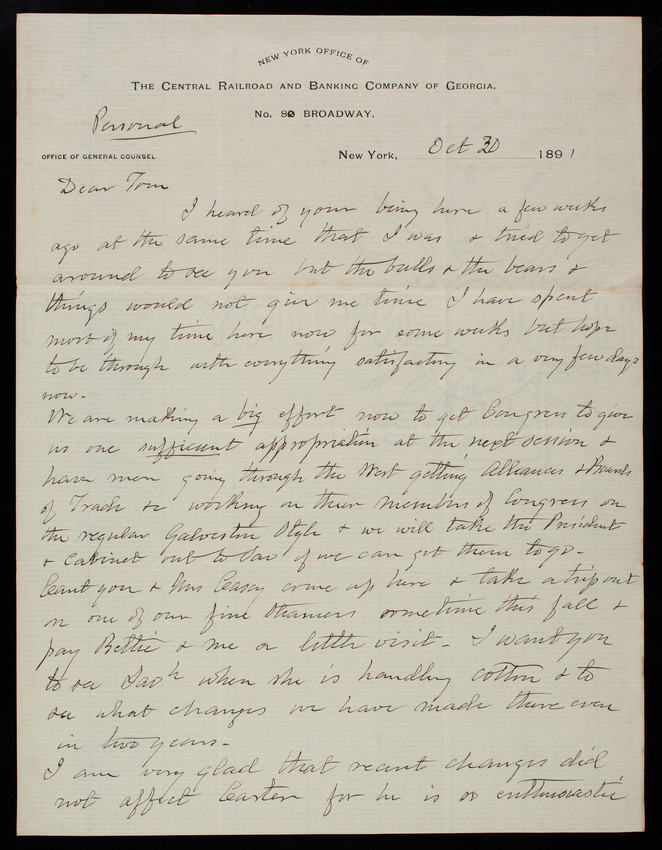 NEW YORK OFFICE OF
THE CENTRAL RAILROAD AND BANKING COMPANY OF GEORGIA.
No. 80 BROADWAY,
Personal
OFFICE OF GENERAL COUNSEL
New York, Oct 30 1891
Dear Tom
I heard of your being here a few weeks
ago at the same time that I was & tried to get
around to see you but the bulls & the bears &
things would not give me time I have spent
most of my time here now for some weeks but hope
to be through with everything satisfactory in a very few days
now.
We are making a big effort now to get Congress to give
us one sufficient appropriation at the next session &
have men going through the West getting Alliances & Boards
of Trade &c working on their members of Congress on
the regular Galveston Style & we will take the President
& Cabinet out to Sav if we can get them to go -
Cant you & Mrs Casey come up here & take a trip out
on one of our fine Steamers sometime this fall &
pay Bettie & me a little visit - I want you
to see Savh when she is handling cotton & to
see what changes we have made there even
in two years -
I am very glad that recent changes did
not affect Carter for he is so enthusiastic